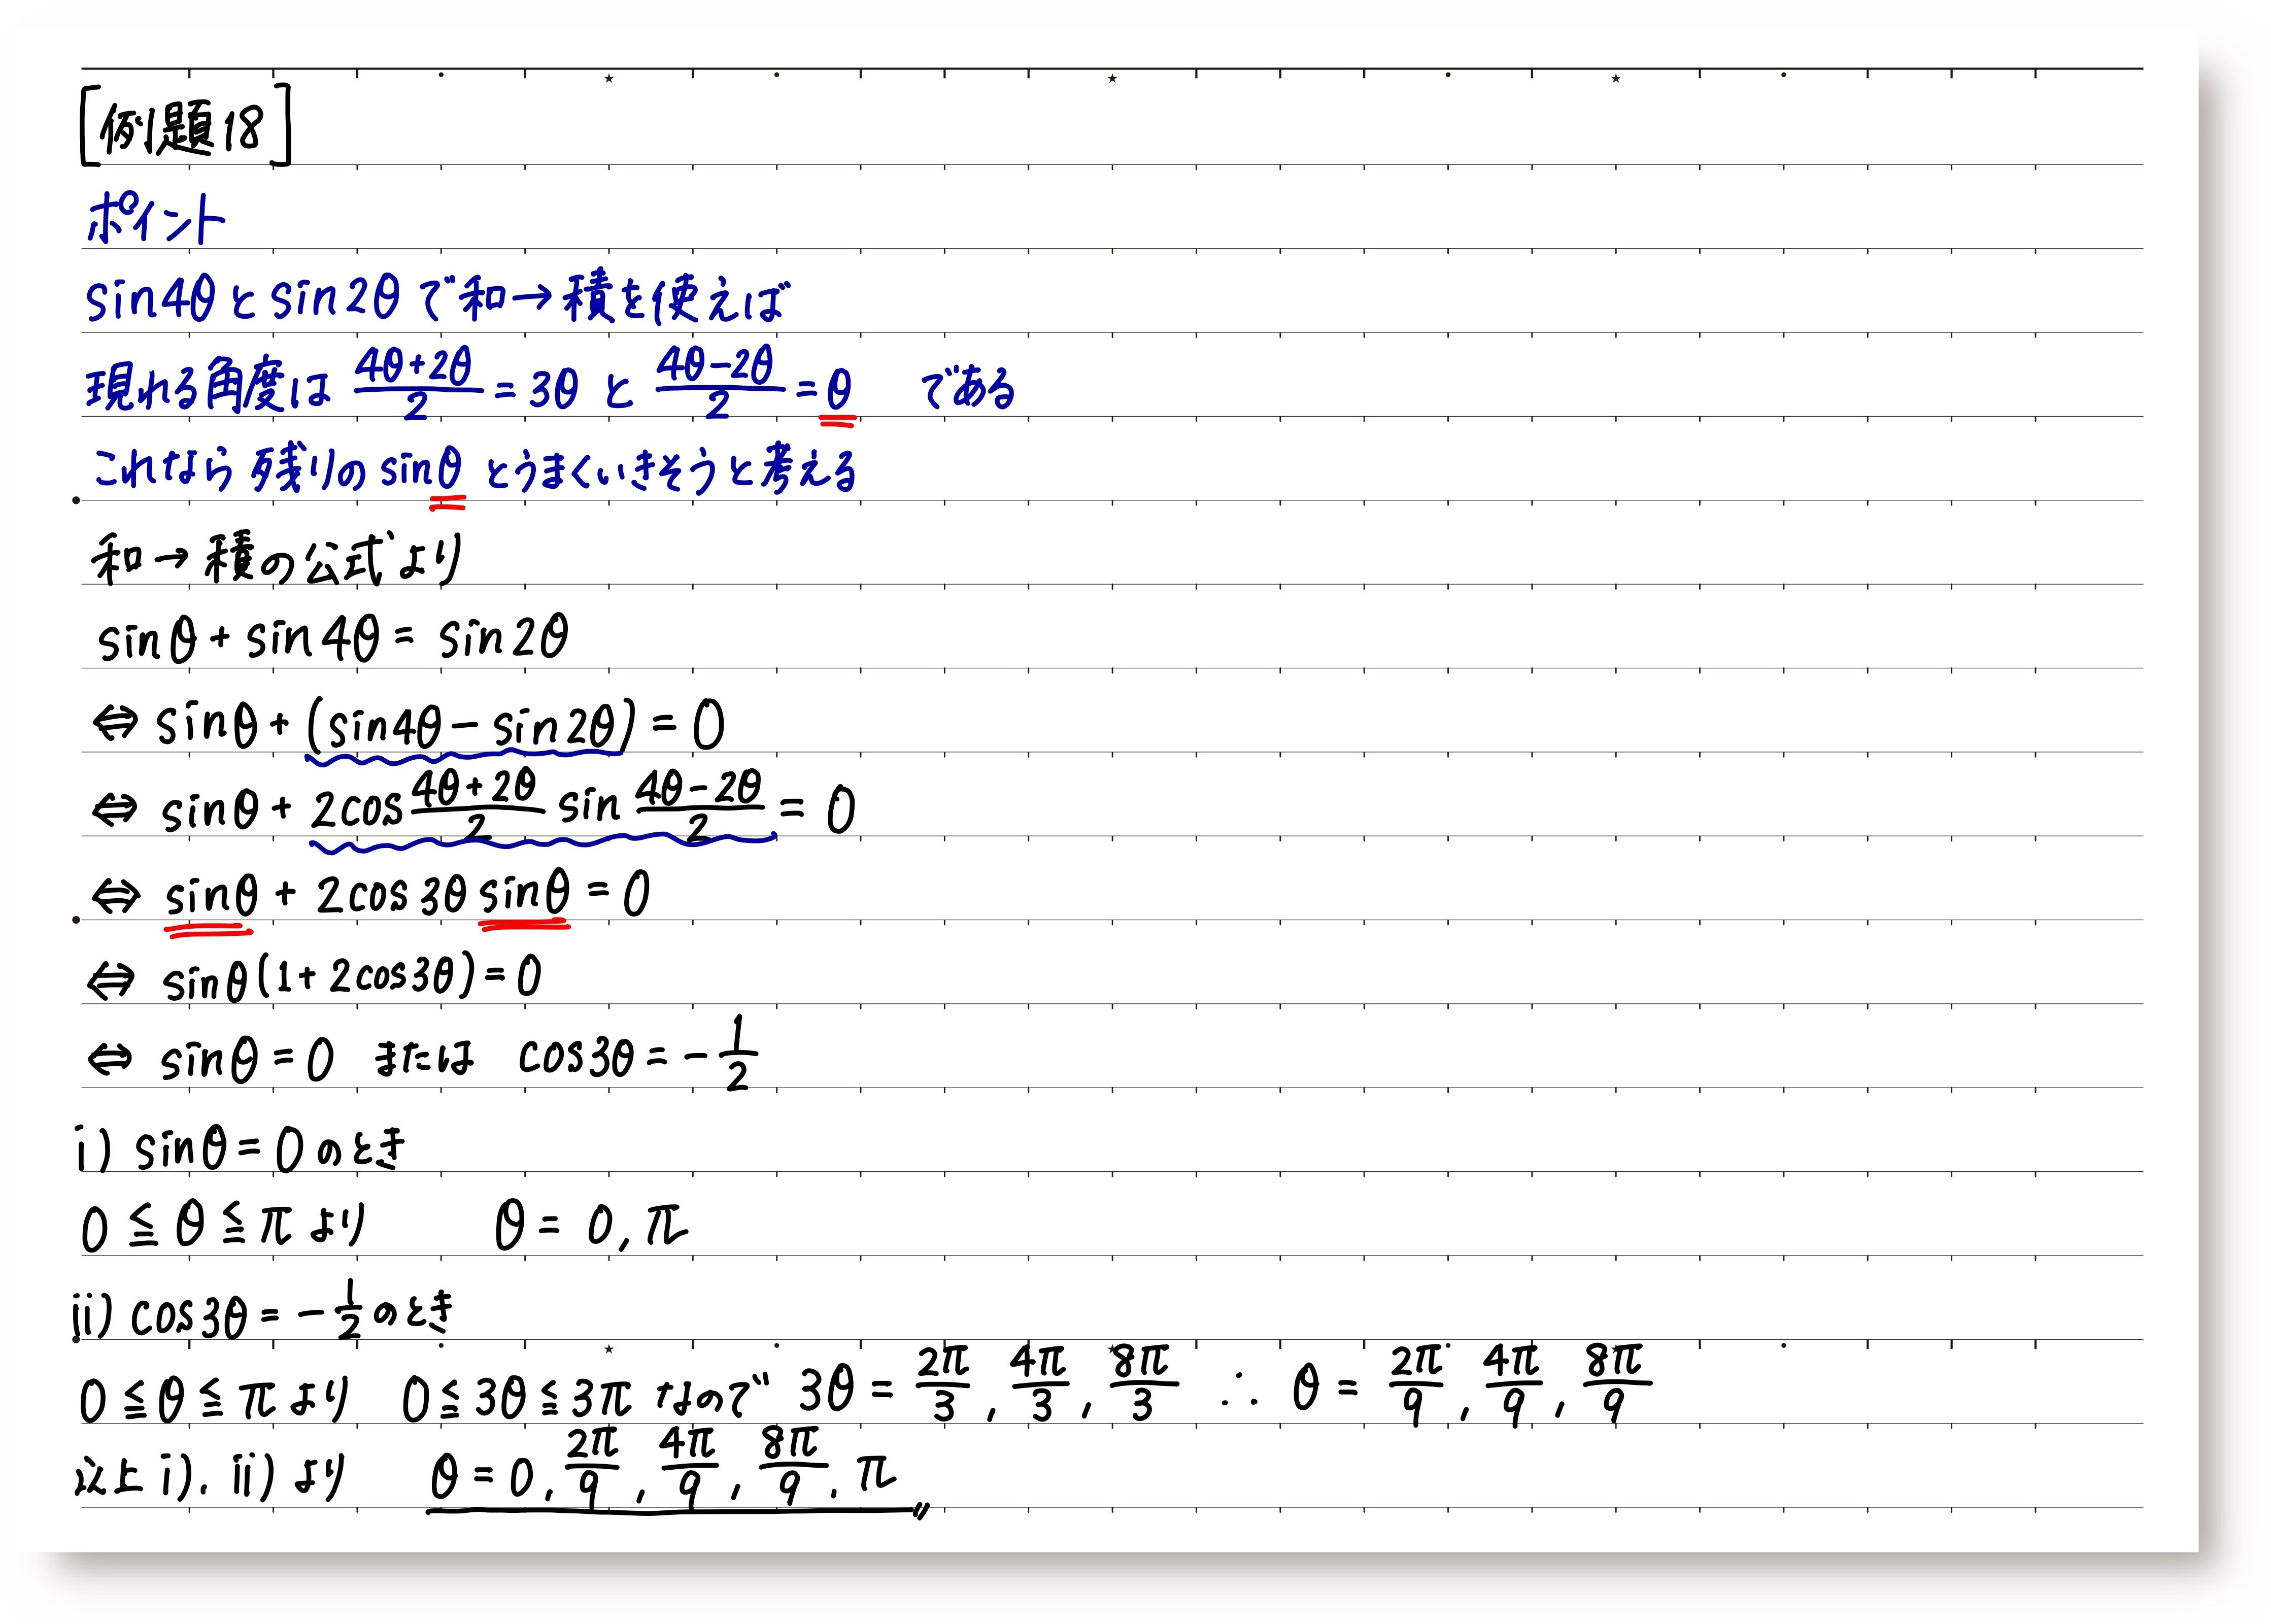 [例題18]
ポイント
sin4θとsin2θで和→積を使えば
現れる角度は (4θ+2θ)/2 = 3θ と (4θ-2θ)/2 = θ である
これなら残りのsinθとうまくいきそうと考える
和→積の公式より
sinθ + sin4θ = sin2θ
⇔ sinθ + (sin4θ - sin2θ) = 0
⇔ sinθ + 2cos (4θ+2θ)/2 sin (4θ-2θ)/2 = 0
⇔ sinθ + 2cos3θ sinθ = 0
⇔ sinθ(1+2cos3θ) = 0
⇔ sinθ = 0 または cos3θ = -1/2
i) sinθ = 0 のとき
0 ≦ θ ≦ π より θ = 0, π
ii) cos3θ = -1/2 のとき
0 ≦ θ ≦ π より 0 ≦ 3θ ≦ 3π なので 3θ = 2π/3, 4π/3, 8π/3 ∴ θ = 2π/9, 4π/9, 8π/9
以上 i), ii) より θ = 0, 2π/9, 4π/9, 8π/9, π